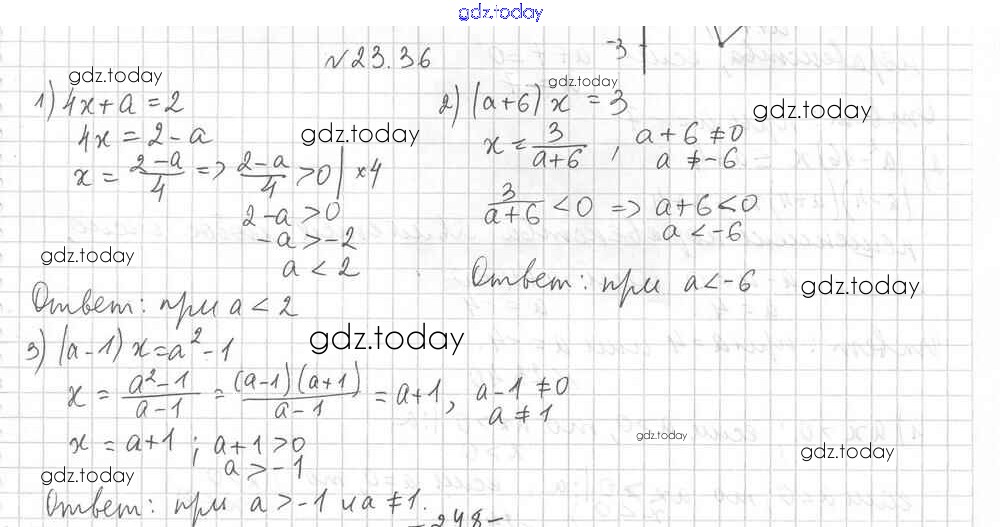 gdz.today
№ 23.36
-3
gdz.today
gdz.today
1) 4x+a=2
2) (a+6) x = 3
gdz.today
4x = 2-a
gdz.today
x = 3/(a+6), a+6≠0
x = (2-a)/4 => (2-a)/4 >0 | ×4
a ≠ -6
2-a>0
3/(a+6) <0 => a+6<0
-a>-2
a<-6
gdz.today
a<2
Ответ: при a<-6
gdz.today
Ответ: при a<2
gdz.today
3) (a-1) x=a²-1
x = (a²-1)/(a-1) = ((a-1)(a+1))/(a-1) = a+1, a-1≠0
a≠1
x = a+1; a+1>0
gdz.today
gdz.today
a>-1
gdz.today
Ответ: при a>-1 и a≠1.